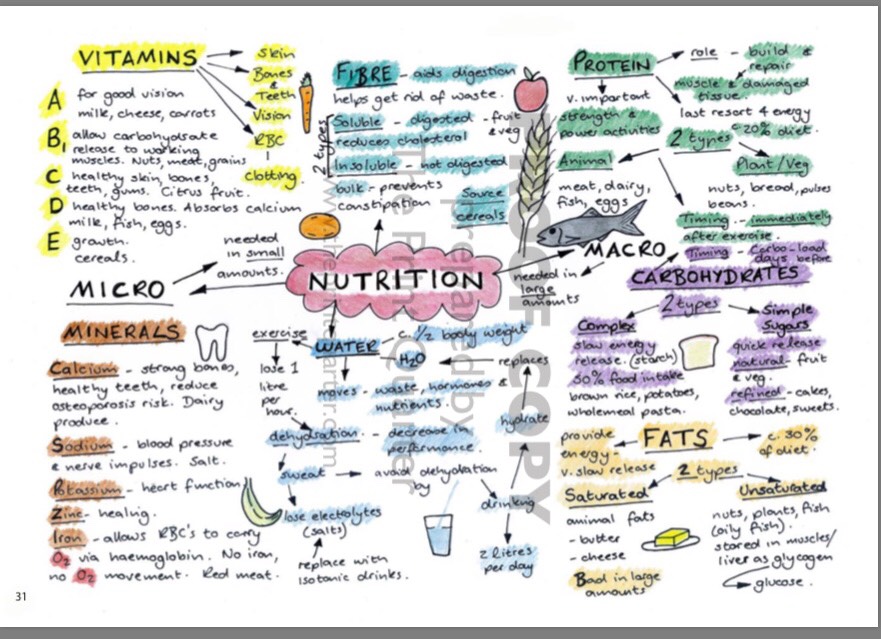 VITAMINS
Skin
Bones
&
Teeth
Vision
RBC
clotting.
A for good vision
milk, cheese, carrots
B₁ allow carbohydsrate
release to working
muscles. Nuts, meat, grains
C healthy skin, bones,
teeth, gums. Citrus fruit.
D healthy bones. Absorbs calcium
milk, fish, eggs.
E growth.
cereals.
needed
in small
amounts.
MICRO
FIBRE - aids digestion
helps get rid of waste.
2 types
Soluble - digested - fruit
& veg
reduces cholesterol
Insoluble - not digested
bulk - prevents
constipation
Source
cereals
PROTEIN
role - build &
repair
muscle & damaged
tissue.
last resort 4 energy
c 20% diet.
v. important
strength &
power activities
2 types
Animal
meat, dairy,
fish, eggs
Plant/Veg
nuts, bread, pulses
beans.
Timing - immediately
after exercise.
NUTRITION
MACRO
needed in
large
amounts
Timing - Carbo-load
days before
CARBOHYDRATES
2 types
Complex
slow energy
release. (starch)
50% food intake
brown rice, potatoes,
wholemeal pasta.
Simple
Sugars
quick release
natural - fruit
& veg.
refined - cakes,
chocolate, sweets.
MINERALS
Calcium - strong bones,
healthy teeth, reduce
osteoporosis risk. Dairy
produce.
Sodium - blood pressure
& nerve impulses. Salt.
Potassium - heart function
Zinc - healing.
Iron - allows RBC's to carry
O₂ via haemoglobin. No iron,
no O₂ movement. Red meat.
exercise
lose 1
litre
per
hour.
WATER
c. 1/2 body weight
H₂O
replaces
moves - waste, hormones &
nutrients.
hydrate
dehydration - decrease in
performance.
sweat
avoid dehydration
by
drinking
lose electrolytes
(salts)
replace with
isotonic drinks.
2 litres
per day
FATS
provide
energy -
v. slow release
c. 30%
of diet.
2 types
Saturated
animal fats
- butter
- cheese
Bad in large
amounts
Unsaturated
nuts, plants, fish
(oily fish).
stored in muscles/
liver as glycogen
glucose.
PROOF COPY
prepared by
The Print Quarter
31